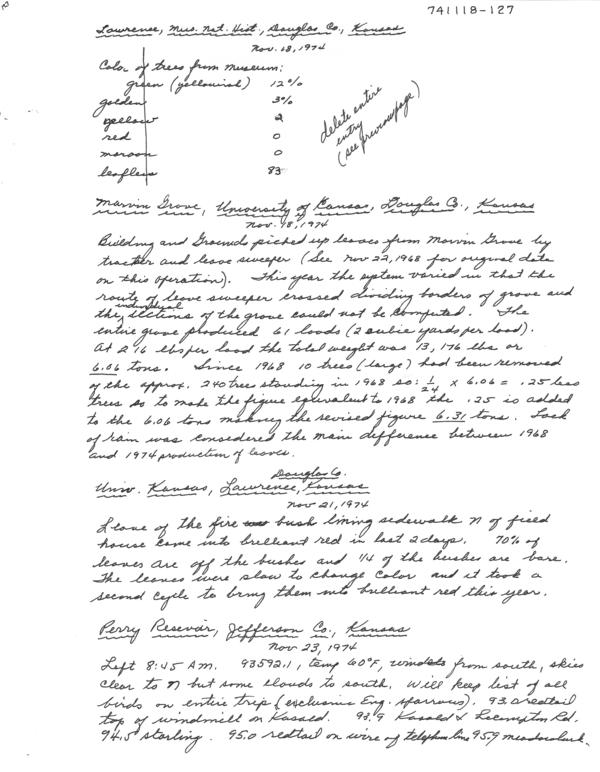 741118-127
Lawrence, Mus. Nat. Hist., Douglas Co., Kansas
Nov. 18, 1974
Color of trees from museum:
green (yellowish) 12%
golden 3%
yellow 2
red 0
maroon 0
leafless 83
delete entire
entry
(see previous page)
Marvin Grove, University of Kansas, Douglas Co., Kansas
Nov. 18, 1974
Building and Grounds picked up leaves from Marvin Grove by
tractor and leave sweeper (See Nov 22, 1968 for original data
on this operation). This year the system varied in that the
route of leave sweeper crossed dividing borders of grove and
the individual sections of the grove could not be computed. The
entire grove produced 61 loads (2 cubic yards per load).
At 216 lbs per load the total weight was 13,176 lbs or
6.06 tons. Since 1968 10 trees (large) had been removed
of the approx. 240 trees standing in 1968 so: 1/24 x 6.06 = .25 less
trees so to make the figure equivalent to 1968 the .25 is added
to the 6.06 tons making the revised figure 6.31 tons. Lack
of rain was considered the main difference between 1968
and 1974 production of leaves.
Univ. Kansas, Lawrence, Douglas Co. Kansas
Nov 21, 1974
Leave of the fire bush lining sidewalk N of field
house came into brilliant red in last 2 days. 70% of
leaves are off the bushes and 1/4 of the bushes are bare.
The leaves were slow to change color and it took a
second cycle to bring them into brilliant red this year.
Perry Resevoir, Jefferson Co., Kansas
Nov 23, 1974
Left 8:45 AM. 93592.1, temp 60°F, winds from south, skies
clear to N but some clouds to south. Will keep list of all
birds on entire trip (exclusive Eng. sparrows). 93.0 redtail
top of windmill on Kasold. 93.9 Kasold & Lecompton Rd.
94.5 starling. 95.0 redtail on wire of telephone line 95.9 meadowlark.